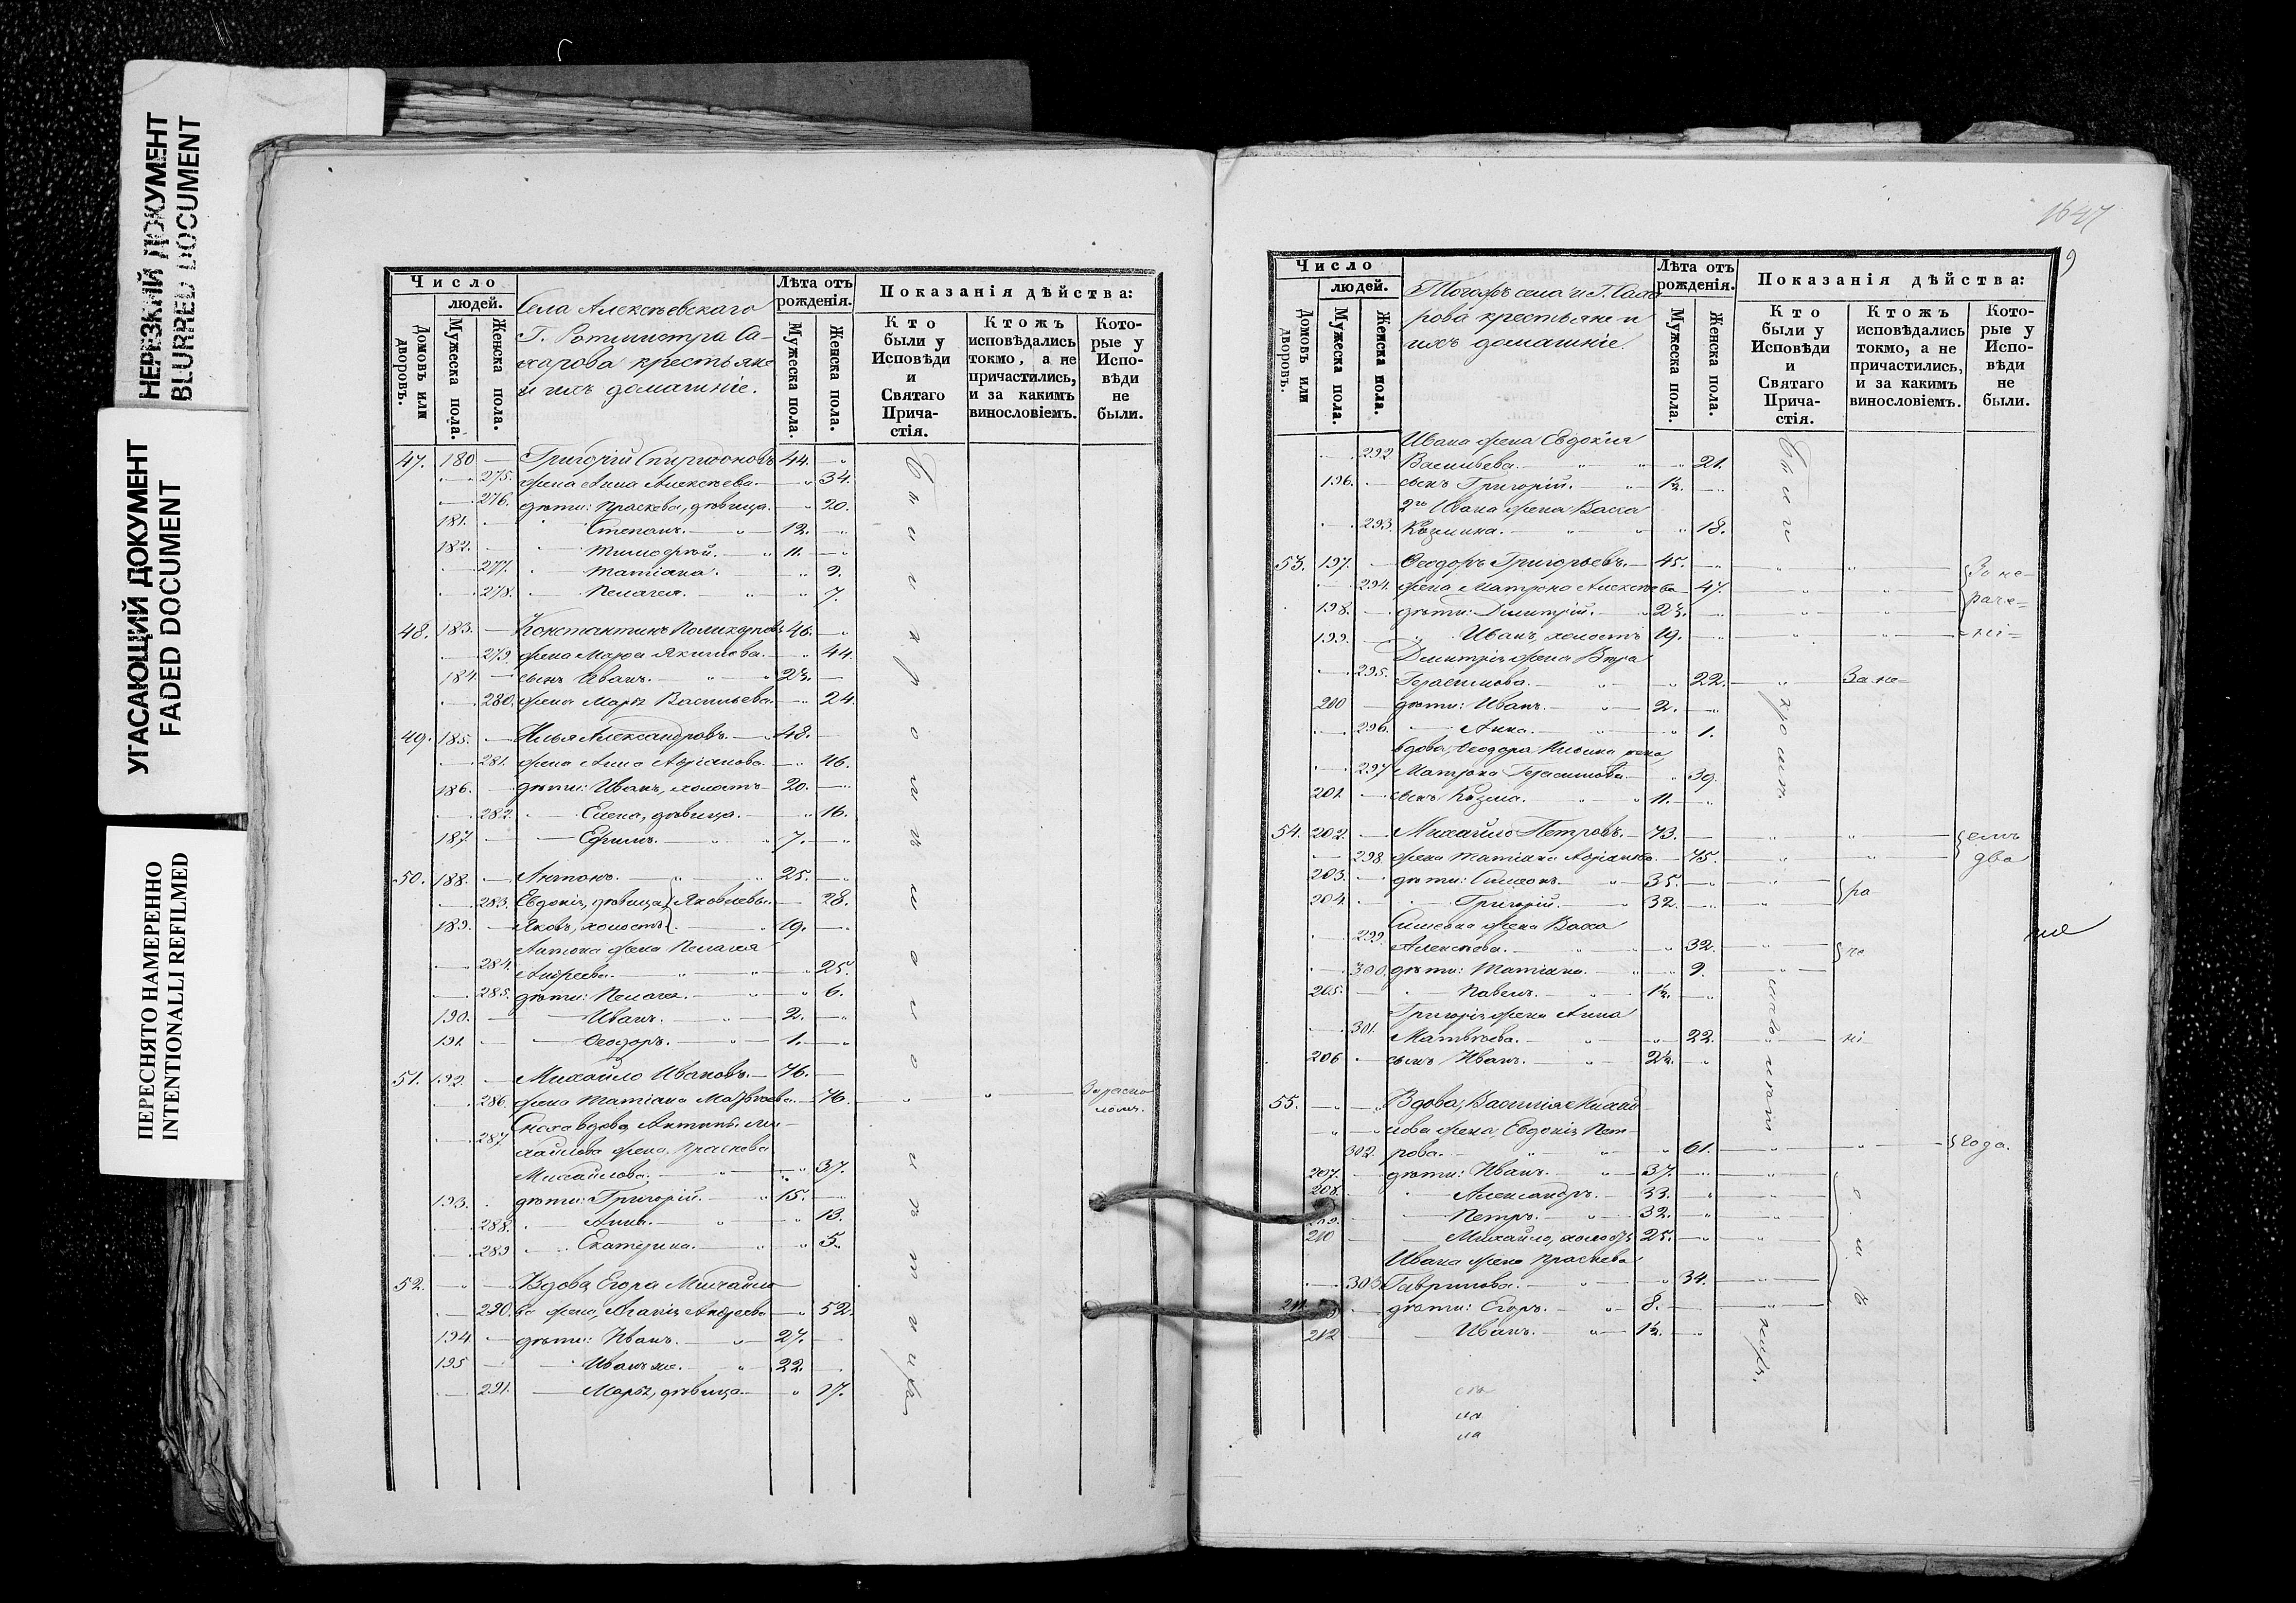 НЕРЕЗКИЙ ДОКУМЕНТ
BLURRED DOCUMENT
УГАСАЮЩИЙ ДОКУМЕНТ
FADED DOCUMENT
ПЕРЕСНЯТО НАМЕРЕННО
INTENTIONALLI REFILMED
Число
людей.
Домовъ или дворовъ.
Мужеска пола.
Женска пола.
Села Алексѣевскаго
Г. Ротмистра Са-
харова крестьяне
и ихъ домашніе.
Лѣта отъ рожденія.
Мужеска пола.
Женска пола.
Показанія дѣйства:
Кто были у Исповѣди и Святаго Прича-стія.
Ктожъ исповѣдались токмо, а не причастились, и за какимъ винословіемъ.
Кото-рые у Испо-вѣди не были.
47. 180 — Григорій Спиридоновъ 44.
275. жена Анна Алексѣева. 34.
276. дѣти: Праскева, дѣвица. 20.
181. Степанъ. 12.
182. Тимоѳей. 11.
277. Татіана. 9.
278. Пелагея. 7.
48. 183. — Константинъ Поликарповъ 46.
279. жена Марѳа Якимова. 44.
184. сынъ Иванъ. 23.
280. жена Марья Васильева. 24.
49. 185. — Илья Александровъ. 48.
281. жена Анна Адріанова. 46.
186. дѣти: Иванъ, холостъ 20.
282. Елена, дѣвица. 16.
187. Ефимъ. 7.
50. 188. — Антонъ. 25.
283. Евдокія, дѣвица Яковлевы. 28.
189. Яковъ, холостъ 19.
Антона жена Пелагея
284. Андреева. 25.
285. дѣти: Пелагея. 6.
190. Иванъ. 2.
191. Ѳеодоръ. 1.
51. 192. — Михайло Ивановъ. 76.
286. жена Татіана Матвѣева. 76. За раско
ломъ.
Сноха вдова Антипа Ми-
287. хайлова жена, Праскева
Михайлова. 37.
193. дѣти: Григорій. 15.
288. Анна. 13.
289 Екатерина. 5.
52. Вдова Егора Михайло
290. ва жена, Агапія Андреева 52.
194 дѣти: Иванъ. 27.
195 Иванъ же. 22.
291. Марья, дѣвица. 17.
1647
9
Число
людей.
Домовъ или дворовъ.
Мужеска пола.
Женска пола.
Тогожъ села и Г. Саха
рова крестьяне и
ихъ домашніе.
Лѣта отъ рожденія.
Мужеска пола.
Женска пола.
Показанія дѣйства:
Кто были у Исповѣди и Святаго Прича-стія.
Ктожъ исповѣдались токмо, а не причастились, и за какимъ винословіемъ.
Кото-рые у Испо-вѣди не были.
Ивана жена Евдокія
292. Васильева. 21.
196. сынъ Григорій. 1½.
2го Ивана жена Васса
293. Козмина. 18.
53. 197. Ѳеодоръ Григорьевъ. 45. За не-
294. жена Матрона Алексѣева 47. раче-
198. дѣти: Димитрій. 23.
199. Иванъ, холостъ 19. ні-
Димитрія жена Вѣра
295. Герасимова. 22. За не-
200 дѣти: Иванъ. 2.
296. Анна. 1.
вдова, Ѳеодора Ильина жена,
297 Матрона Герасимова. 39.
201. сынъ Козма. 11.
54. 202. Михайло Петровъ. 73. емъ
298. жена Татіана Адріанова. 75. два
203. дѣти: Симеонъ. 35. ра
204. Григорій. 32.
Симеона жена Васса
299. Алексѣева. 32. че
300. дѣти: Татіана. 9.
205. Павелъ. 1½.
Григорія жена Анна
301. Матвѣева. 22. ні
206 сынъ Иванъ. 2½.
55. Вдова, Василія Михай
лова жена, Евдокія Пет-
302. рова. 61. года.
207. дѣти: Иванъ. 37.
208. Александръ. 33.
209. Петръ. 32.
210 Михайло, холостъ 25.
Ивана жена Праскева
303 Гаврилова. 34.
211. дѣти: Егоръ. 8.
212 Иванъ. 1½.